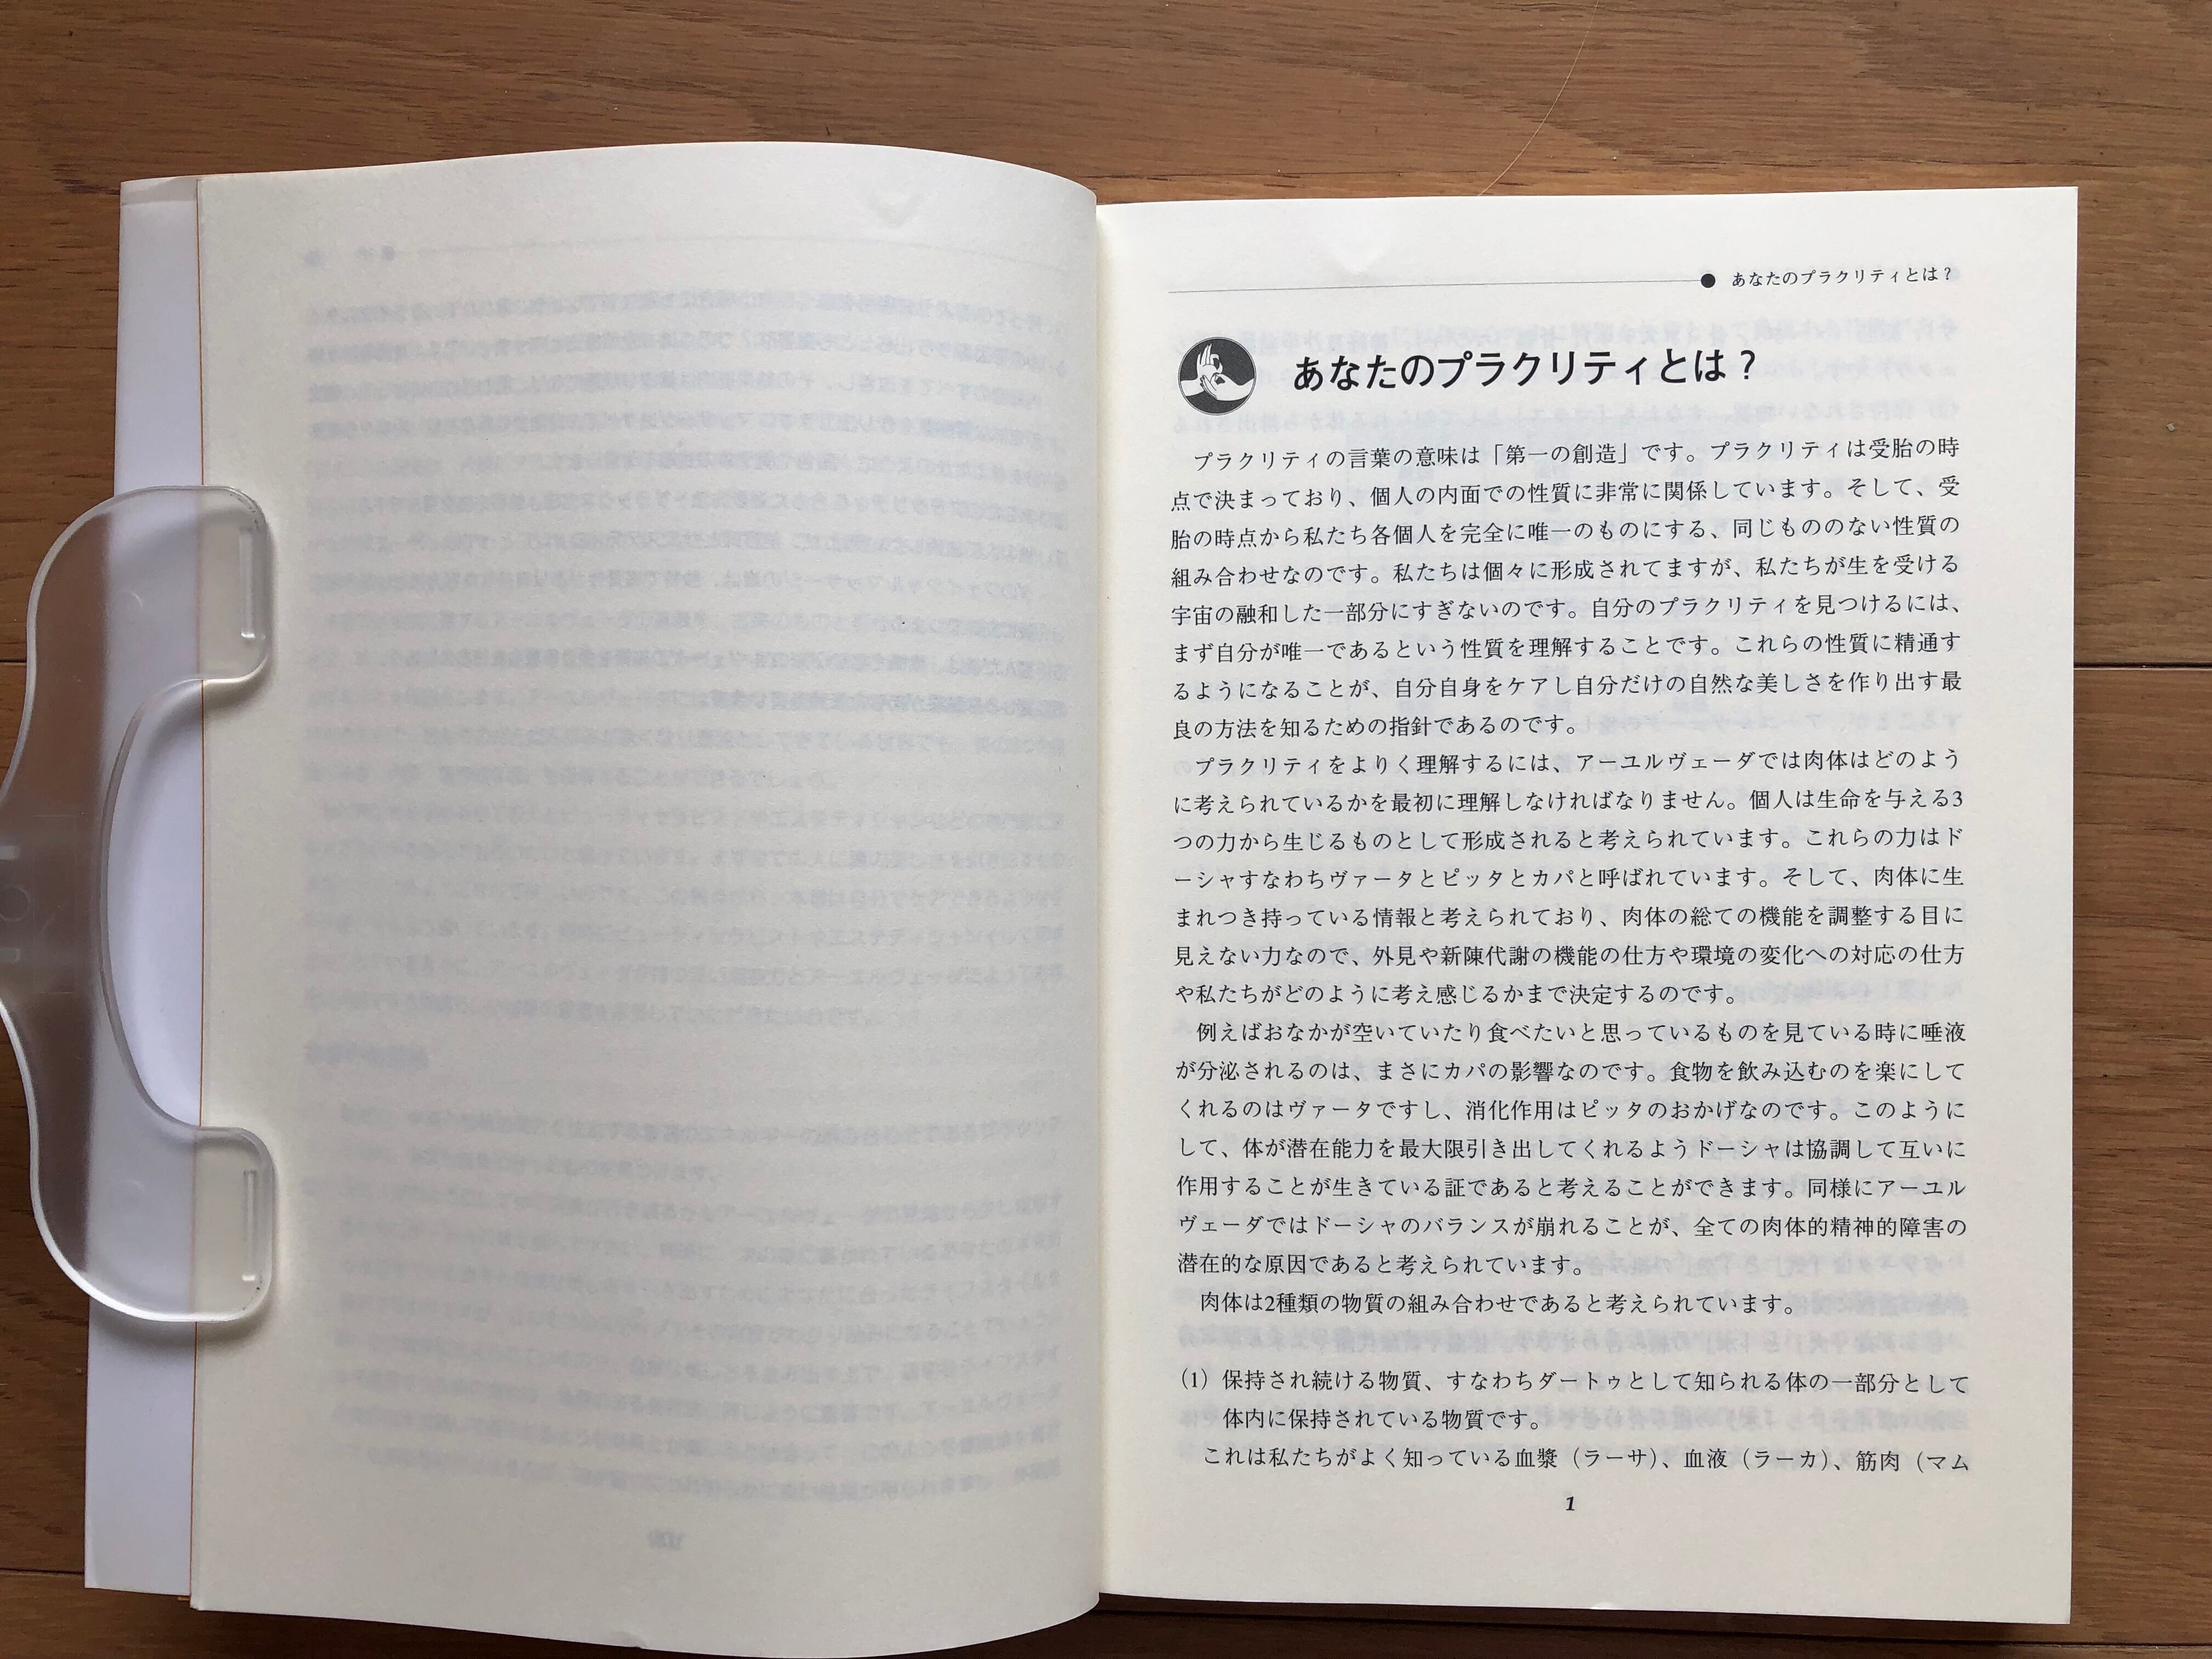 あなたのプラクリティとは？
あなたのプラクリティとは？
プラクリティの言葉の意味は「第一の創造」です。プラクリティは受胎の時
点で決まっており、個人の内面での性質に非常に関係しています。そして、受
胎の時点から私たち各個人を完全に唯一のものにする、同じもののない性質の
組み合わせなのです。私たちは個々に形成されてますが、私たちが生を受ける
宇宙の融和した一部分にすぎないのです。自分のプラクリティを見つけるには、
まず自分が唯一であるという性質を理解することです。これらの性質に精通す
るようになることが、自分自身をケアし自分だけの自然な美しさを作り出す最
良の方法を知るための指針であるのです。
プラクリティをよりく理解するには、アーユルヴェーダでは肉体はどのよう
に考えられているかを最初に理解しなければなりません。個人は生命を与える3
つの力から生じるものとして形成されると考えられています。これらの力はド
ーシャすなわちヴァータとピッタとカパと呼ばれています。そして、肉体に生
まれつき持っている情報と考えられており、肉体の総ての機能を調整する目に
見えない力なので、外見や新陳代謝の機能の仕方や環境の変化への対応の仕方
や私たちがどのように考え感じるかまで決定するのです。
例えばおなかが空いていたり食べたいと思っているものを見ている時に唾液
が分泌されるのは、まさにカパの影響なのです。食物を飲み込むのを楽にして
くれるのはヴァータですし、消化作用はピッタのおかげなのです。このように
して、体が潜在能力を最大限引き出してくれるようドーシャは協調して互いに
作用することが生きている証であると考えることができます。同様にアーユル
ヴェーダではドーシャのバランスが崩れることが、全ての肉体的精神的障害の
潜在的な原因であると考えられています。
肉体は2種類の物質の組み合わせであると考えられています。
（1）保持され続ける物質、すなわちダートゥとして知られる体の一部分として
体内に保持されている物質です。
これは私たちがよく知っている血漿（ラーサ）、血液（ラーカ）、筋肉（マム
1